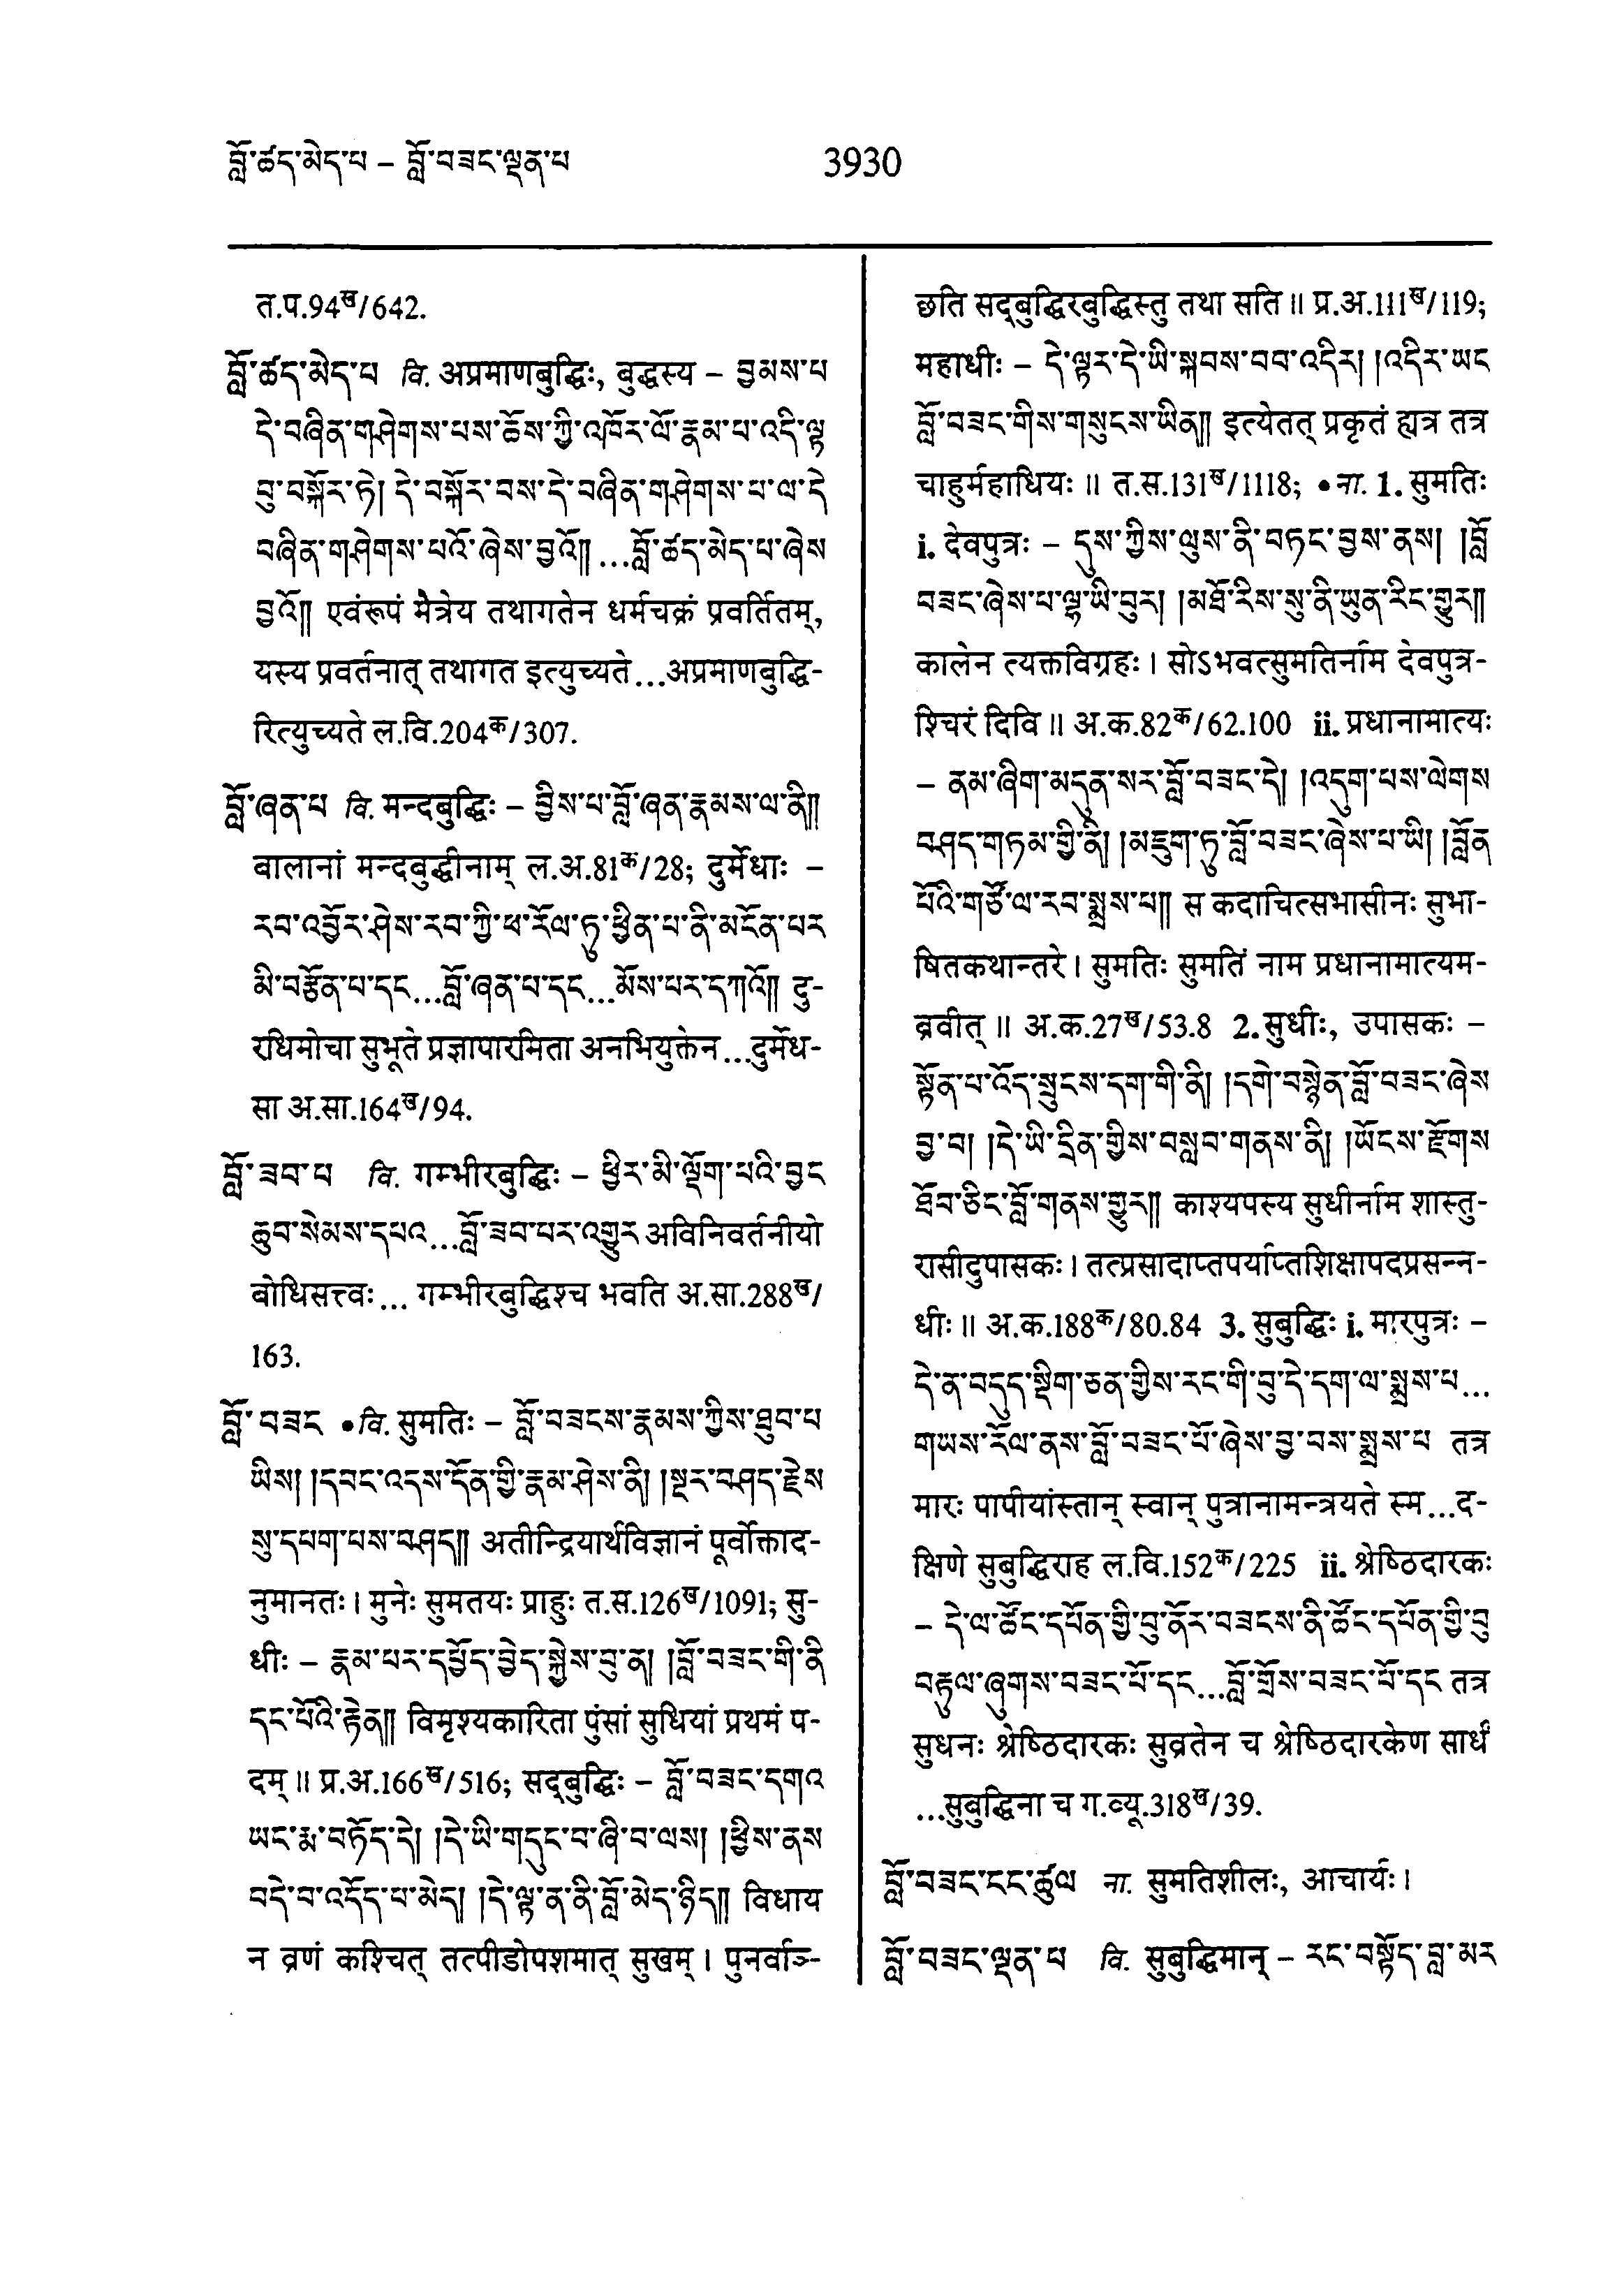 བློ་ཚད་མེད་པ – བློ་བཟང་ལྡན་པ
3930
त.प.94ख/642.
བློ་ཚད་མེད་པ वि. अप्रमाणबुद्धिः, बुद्धस्य – བྱམས་པ
དེ་བཞིན་གཤེགས་པས་ཆོས་ཀྱི་འཁོར་ལོ་རྣམ་པ་འདི་ལྟ
བུ་བསྐོར་ཏེ། དེ་བསྐོར་བས་དེ་བཞིན་གཤེགས་པ་ལ་དེ
བཞིན་གཤེགས་པའོ་ཞེས་བྱའོ།། ...བློ་ཚད་མེད་པ་ཞེས
བྱའོ།། एवंरूपं मैत्रेय तथागतेन धर्मचक्रं प्रवर्तितम्,
यस्य प्रवर्तनात् तथागत इत्युच्यते...अप्रमाणबुद्धि-
रित्युच्यते ल.वि.204क/307.
བློ་ཞན་པ वि. मन्दबुद्धिः – བྱིས་པ་བློ་ཞན་རྣམས་ལ་ནི།།
बालानां मन्दबुद्धीनाम् ल.अ.81क/28; दुर्मेधाः –
རབ་འབྱོར་ཤེས་རབ་ཀྱི་ཕ་རོལ་ཏུ་ཕྱིན་པ་ནི་མངོན་པར
མི་བརྩོན་པ་དང...བློ་ཞན་པ་དང...མོས་པར་དཀའོ།། दु-
रधिमोचा सुभूते प्रज्ञापारमिता अनभियुक्तेन...दुर्मेध-
सा अ.सा.164ख/94.
བློ་ཟབ་པ वि. गम्भीरबुद्धिः – ཕྱིར་མི་ལྡོག་པའི་བྱང
ཆུབ་སེམས་དཔའ...བློ་ཟབ་པར་འགྱུར अविनिवर्तनीयो
बोधिसत्त्वः... गम्भीरबुद्धिश्च भवति अ.सा.288ख/
163.
བློ་བཟང •वि. सुमतिः – བློ་བཟངས་རྣམས་ཀྱིས་ཐུབ་པ
ཡིས། །དབང་འདས་དོན་གྱི་རྣམ་ཤེས་ནི། །སྔར་བཤད་རྗེས
སུ་དཔག་པས་བཤད།། अतीन्द्रियार्थविज्ञानं पूर्वोक्ताद-
नुमानतः। मुनेः सुमतयः प्राहुः त.स.126ख/1091; सु-
धीः – རྣམ་པར་དཔྱོད་བྱེད་སྐྱེས་བུ་ན། །བློ་བཟང་གི་ནི
དང་པོའི་རྟེན།། विमृश्यकारिता पुंसां सुधियां प्रथमं प-
दम्॥ प्र.अ.166ख/516; सद्बुद्धिः – བློ་བཟང་དགའ
ཡང་རྨ་བཏོད་དེ། །དེ་ཡི་གདུང་བ་ཞི་བ་ལས། །ཕྱིས་ནས
བདེ་བ་འདོད་པ་མེད། །དེ་ལྟ་ན་ནི་བློ་མེད་ཉིད།། विधाय
न व्रणं कश्चित् तत्पीडोपशमात् सुखम्। पुनर्वाञ्-
छति सद्बुद्धिरबुद्धिस्तु तथा सति॥ प्र.अ.111ख/119;
महाधीः – དེ་ལྟར་དེ་ཡི་སྐབས་བབ་འདིར། །འདིར་ཡང
བློ་བཟང་གིས་གསུངས་ཡིན།། इत्येतत् प्रकृतं ह्यत्र तत्र
चाहुर्महाधियः॥ त.स.131ख/1118; •ना. 1. सुमतिः
i. देवपुत्रः – དུས་ཀྱིས་ལུས་ནི་བཏང་བྱས་ནས། །བློ
བཟང་ཞེས་པ་ལྷ་ཡི་བུར། །མཐོ་རིས་སུ་ནི་ཡུན་རིང་གྱུར།།
कालेन त्यक्तविग्रहः। सोऽभवत्सुमतिर्नाम देवपुत्र-
श्चिरं दिवि॥ अ.क.82क/62.100 ii. प्रधानामात्यः
– ནམ་ཞིག་མདུན་སར་བློ་བཟང་དེ། །འདུག་པས་ལེགས
བཤད་གཏམ་གྱི་ནི། །མཇུག་ཏུ་བློ་བཟང་ཞེས་པ་ཡི། །བློན
པོའི་གཙོ་ལ་རབ་སྨྲས་པ།། स कदाचित्सभासीनः सुभा-
षितकथान्तरे। सुमतिः सुमतिं नाम प्रधानामात्यम-
ब्रवीत्॥ अ.क.27ख/53.8 2. सुधीः, उपासकः –
སྟོན་པ་འོད་སྲུངས་དག་གི་ནི། །དགེ་བསྙེན་བློ་བཟང་ཞེས
བྱ་བ། །དེ་ཡི་དྲིན་གྱིས་བསླབ་གནས་ནི། །ཡོངས་རྫོགས
ཐོབ་ཅིང་བློ་གནས་གྱུར།། काश्यपस्य सुधीर्नाम शास्तु-
रासीदुपासकः। तत्प्रसादाप्तपर्याप्तशिक्षापदप्रसन्न-
धीः॥ अ.क.188क/80.84 3. सुबुद्धिः i. मारपुत्रः –
དེ་ན་བདུད་སྡིག་ཅན་གྱིས་རང་གི་བུ་དེ་དག་ལ་སྨྲས་པ...
གཡས་རོལ་ནས་བློ་བཟང་པོ་ཞེས་བྱ་བས་སྨྲས་པ तत्र
मारः पापीयांस्तान् स्वान् पुत्रानामन्त्रयते स्म...द-
क्षिणे सुबुद्धिराह ल.वि.152क/225 ii. श्रेष्ठिदारकः
– དེ་ལ་ཚོང་དཔོན་གྱི་བུ་ནོར་བཟངས་ནི་ཚོང་དཔོན་གྱི་བུ
བརྟུལ་ཞུགས་བཟང་པོ་དང...བློ་གྲོས་བཟང་པོ་དང तत्र
सुधनः श्रेष्ठिदारकः सुव्रतेन च श्रेष्ठिदारकेण सार्धं
...सुबुद्धिना च ग.व्यू.318ख/39.
བློ་བཟང་ངང་ཚུལ ना. सुमतिशीलः, आचार्यः।
བློ་བཟང་ལྡན་པ वि. सुबुद्धिमान् – རང་བསྟོད་བླ་མར